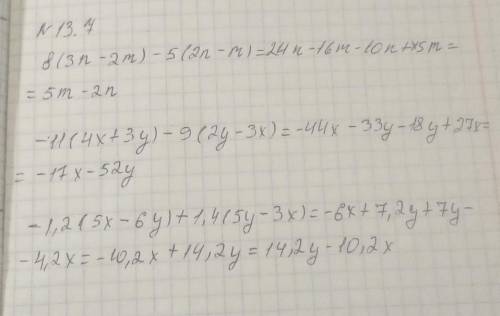 N 13.7
8(3n-2m)-5(2n-m)=24n-16m-10n+15m=
=5m-2n
-11(4x+3y)-9(2y-3x)=-44x-33y-18y+27x=
=-17x-52y
-1,2(5x-6y)+1,4(5y-3x)=-6x+7,2y+7y-
-4,2x=-10,2x+14,2y=14,2y-10,2x